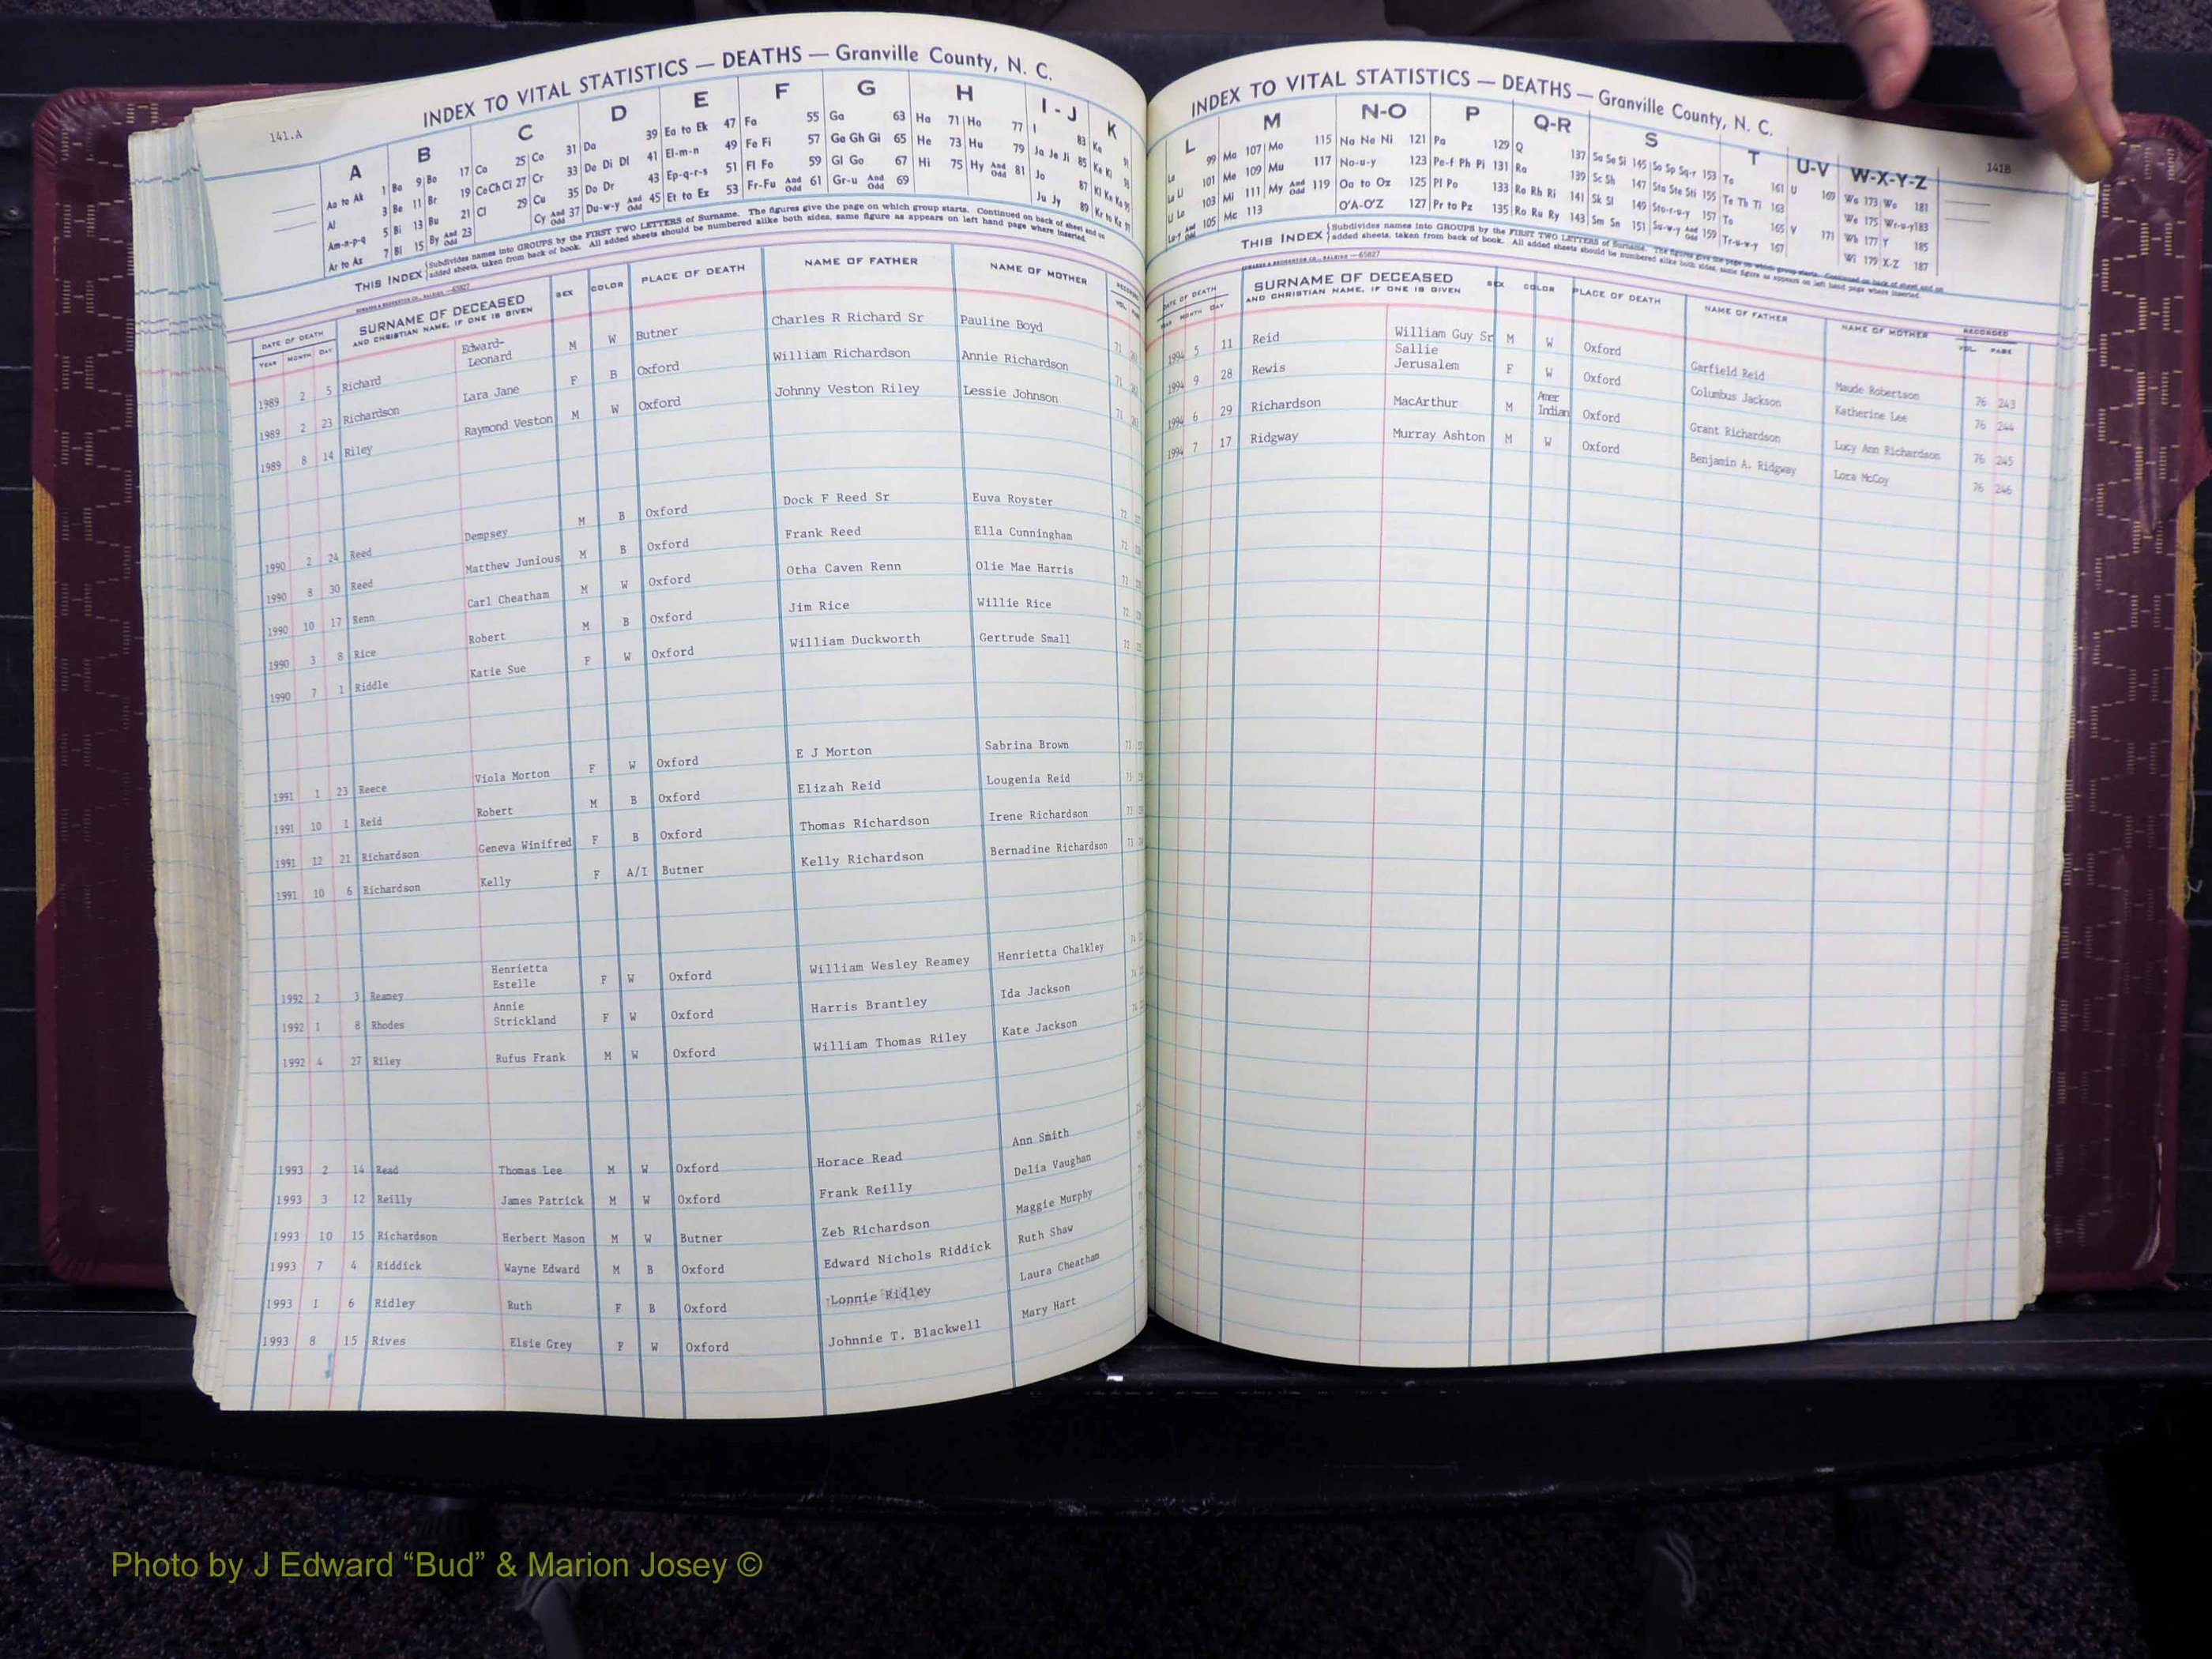 141.A
INDEX TO VITAL STATISTICS — DEATHS — Granville County, N. C.
A B C D E F G H I - J K
Aa to Ak 1 Ba 9 Bo 17 Ca 25 Co 31 Da 39 Ea to Ek 47 Fa 55 Ga 63 Ha 71 Ho 77 I 83 Ka
Al 3 Be 11 Br 19 Ce Ch Ci 27 Cr 33 De Di Dl 41 El-m-n 49 Fe Fi 57 Ge Gh Gi 65 He 73 Hu 79 Ja Je Ji 85
Am-n-p-q 5 Bi 13 Bu 21 Cl 29 Cu 35 Do Dr 43 Ep-q-r-s 51 Fl Fo 59 Gl Go 67 Hi 75 Hy And Odd 81 Jo 87
Ar to Az 7 Bl 15 By And Odd 23 Cy And Odd 37 Du-w-y And Odd 45 Et to Ez 53 Fr-Fu And Odd 61 Gr-u And Odd 69 Ju Jy 89
THIS INDEX Subdivides names into GROUPS by the FIRST TWO LETTERS of Surname. The figures give the page on which group starts. Continued on back of sheet and on
added sheets, taken from back of book. All added sheets should be numbered alike both sides, same figure as appears on left hand page where inserted.
DATE OF DEATH SURNAME OF DECEASED SEX COLOR PLACE OF DEATH NAME OF FATHER NAME OF MOTHER
YEAR MONTH DAY AND CHRISTIAN NAME, IF ONE IS GIVEN
1989 2 5 Richard Edward-Leonard M W Butner Charles R Richard Sr Pauline Boyd 71
1989 2 23 Richardson Lara Jane F B Oxford William Richardson Annie Richardson 71
1989 8 14 Riley Raymond Veston M W Oxford Johnny Veston Riley Lessie Johnson 71
1990 2 24 Reed Dempsey M B Oxford Dock F Reed Sr Euva Royster 72
1990 8 30 Reed Matthew Junious M B Oxford Frank Reed Ella Cunningham 72
1990 10 17 Renn Carl Cheatham M W Oxford Otha Caven Renn Olie Mae Harris 72
1990 3 8 Rice Robert M B Oxford Jim Rice Willie Rice 72
1990 7 1 Riddle Katie Sue F W Oxford William Duckworth Gertrude Small 72
1991 1 23 Reece Viola Morton F W Oxford E J Morton Sabrina Brown 73
1991 10 1 Reid Robert M B Oxford Elizah Reid Lougenia Reid 73
1991 12 21 Richardson Geneva Winifred F B Oxford Thomas Richardson Irene Richardson 73
1991 10 6 Richardson Kelly F A/I Butner Kelly Richardson Bernadine Richardson 73
1992 2 3 Reamey Henrietta Estelle F W Oxford William Wesley Reamey Henrietta Chalkley 74
1992 1 8 Rhodes Annie Strickland F W Oxford Harris Brantley Ida Jackson 74
1992 4 27 Riley Rufus Frank M W Oxford William Thomas Riley Kate Jackson 74
1993 2 14 Read Thomas Lee M W Oxford Horace Read Ann Smith
1993 3 12 Reilly James Patrick M W Oxford Frank Reilly Delia Vaughan
1993 10 15 Richardson Herbert Mason M W Butner Zeb Richardson Maggie Murphy
1993 7 4 Riddick Wayne Edward M B Oxford Edward Nichols Riddick Ruth Shaw
1993 1 6 Ridley Ruth F B Oxford Lonnie Ridley Laura Cheatham
1993 8 15 Rives Elsie Grey F W Oxford Johnnie T. Blackwell Mary Hart
141B
INDEX TO VITAL STATISTICS — DEATHS — Granville County, N. C.
L M N-O P Q-R S T U-V W-X-Y-Z
La 99 Ma 107 Mo 115 Na Ne Ni 121 Pa 129 Q 137 Sa Se Si 145 So Sp Sq-r 153 Ta 161 U 169 Wa 173 Wo 181
101 Me 109 Mu 117 No-u-y 123 Pe-f Ph Pi 131 Ra 139 Sc Sh 147 Sta Ste Sti 155 Te Th Ti 163 We 175 Wr-u-y 183
103 Mi 111 My And Odd 119 Oa to Oz 125 Pl Po 133 Re Rh Ri 141 Sk Sl 149 Sto-r-u-y 157 To 165 V 171 Wh 177 Y 185
105 Mc 113 O'A-O'Z 127 Pr to Pz 135 Ro Ru Ry 143 Sm Sn 151 Su-w-y And Odd 159 Tr-u-w-y 167 Wi 179 X-Z 187
THIS INDEX Subdivides names into GROUPS by the FIRST TWO LETTERS of Surname. The figures give the page on which group starts. Continued on back of sheet and on
added sheets, taken from back of book. All added sheets should be numbered alike both sides, same figure as appears on left hand page where inserted.
DATE OF DEATH SURNAME OF DECEASED SEX COLOR PLACE OF DEATH NAME OF FATHER NAME OF MOTHER RECORDED
YEAR MONTH DAY AND CHRISTIAN NAME, IF ONE IS GIVEN VOL. PAGE
1994 5 11 Reid William Guy Sr M W Oxford Garfield Reid Maude Robertson 76 243
1994 9 28 Rewis Sallie Jerusalem F W Oxford Columbus Jackson Katherine Lee 76 244
1994 6 29 Richardson MacArthur M Amer Indian Oxford Grant Richardson Lucy Ann Richardson 76 245
1994 7 17 Ridgway Murray Ashton M W Oxford Benjamin A. Ridgway Lora McCoy 76 246
Photo by J Edward “Bud” & Marion Josey ©